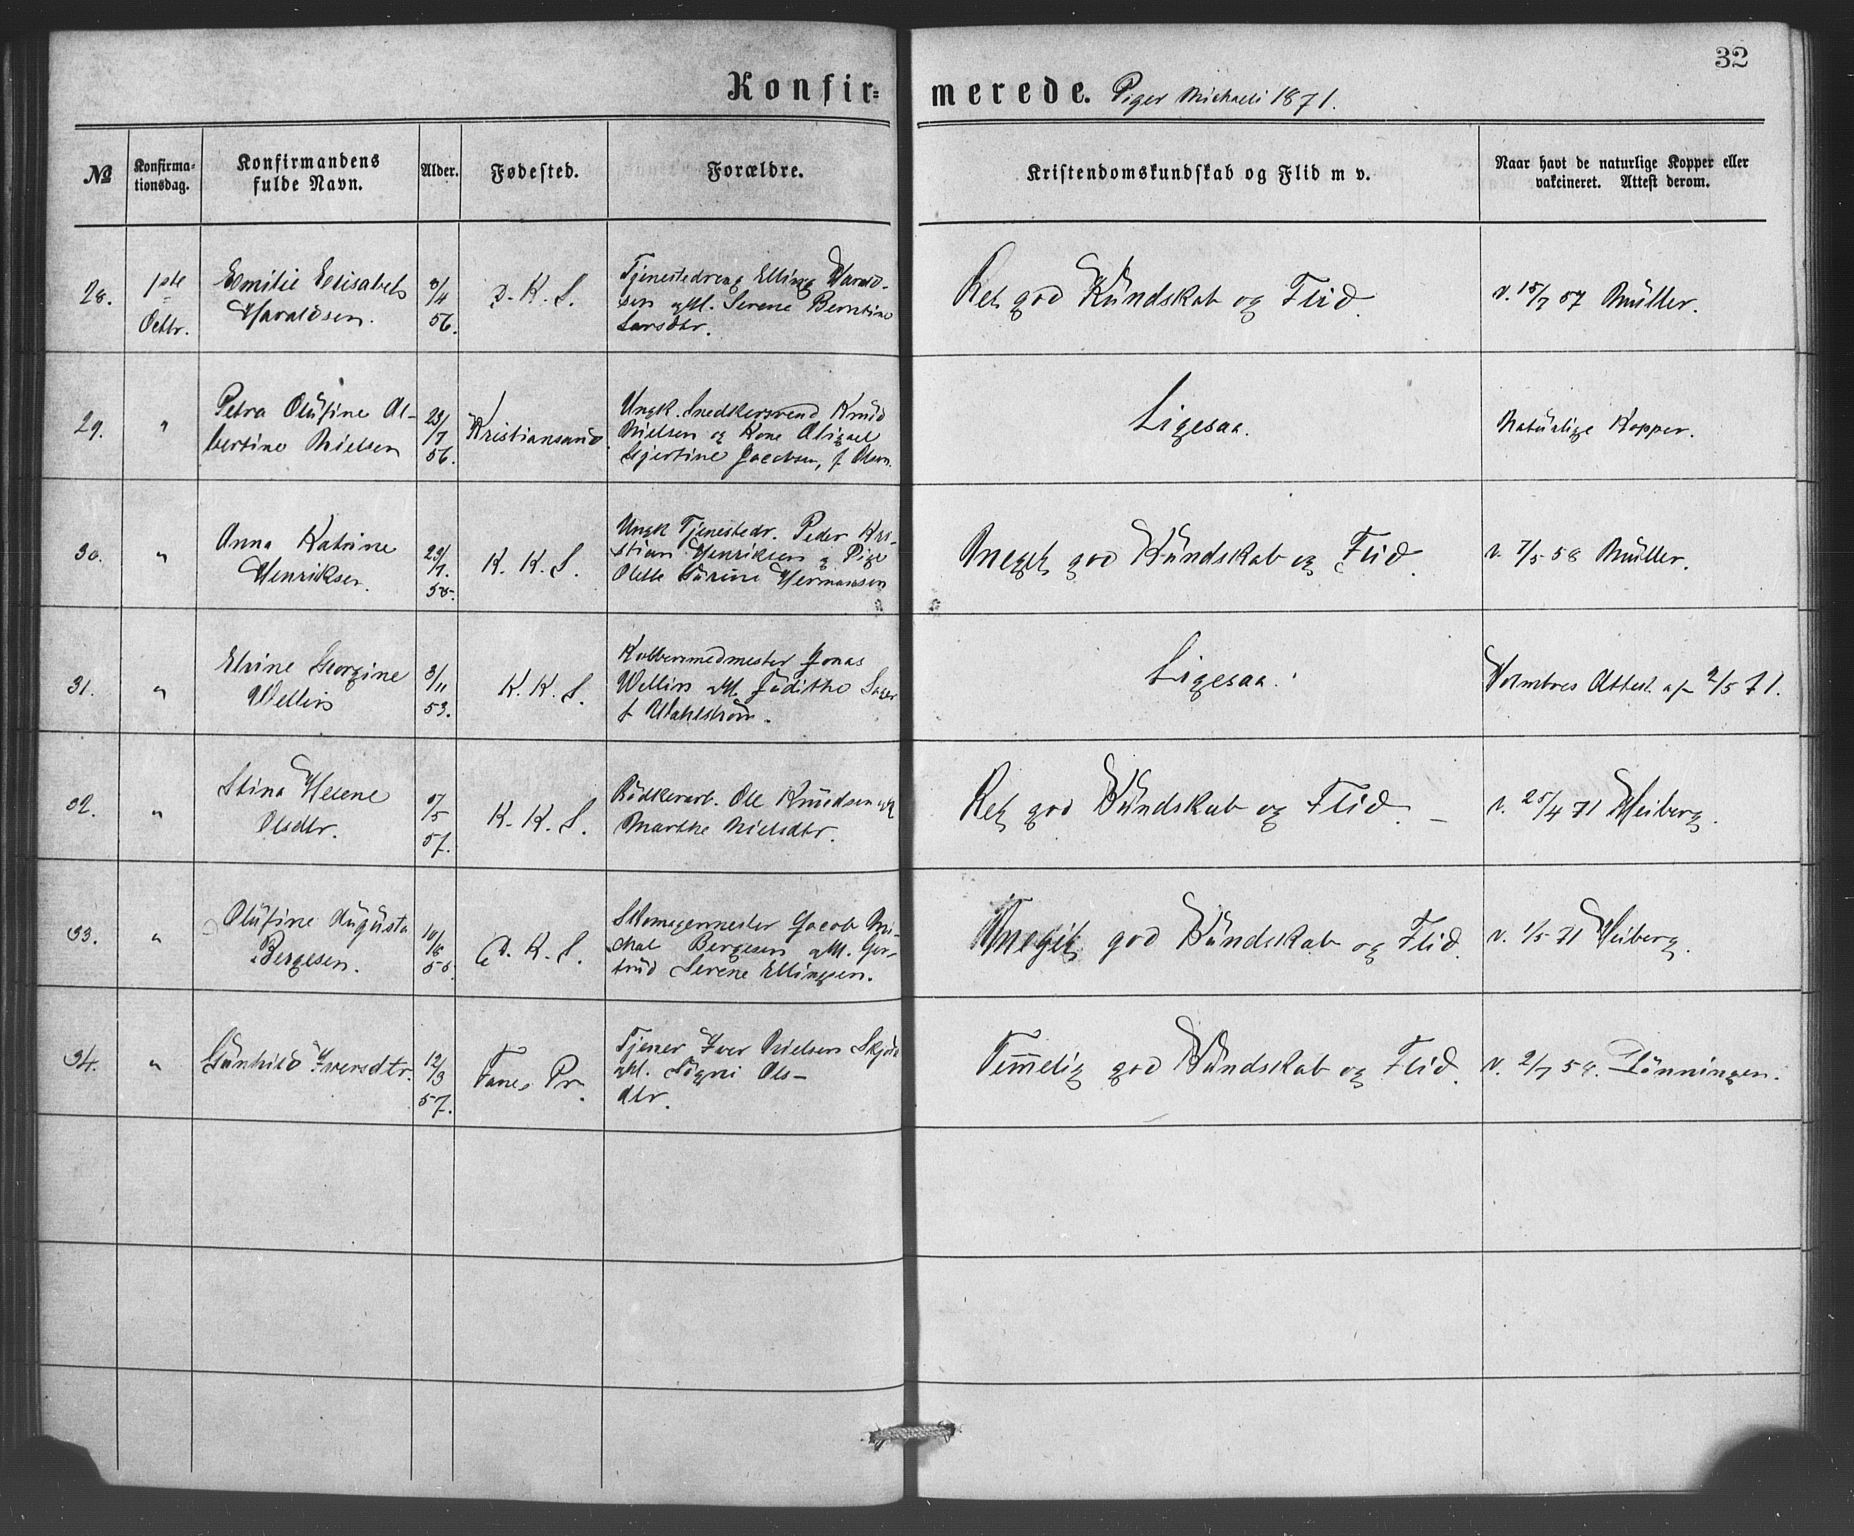 32
Konfir=
merede. Piger Michaeli 1871.
№
Konfirma-
tionsdag.
Konfirmandens
fulde Navn.
Alder.
Fødested.
Forældre.
Kristendomskundskab og Flid m v.
Naar havt de naturlige Kopper eller
vakcineret. Attest derom.
28.
1ste
Octbr.
Emilie Elisabeth
Haraldsen.
8/4
56.
D. K. S.
Tjenestedreng Elling Harald-
sen og M. Serene Berntine
Larsdtr.
Ret god Kundskab og Flid.
v. 15/7 57 Müller.
29.
"
Petra Olufine Al-
bertine Nielsen
23/7
56.
Kristiansand.
Ungk. Snedkersvend Knud
Nielsen og Kone Abigael
Gjertine Jacobsen, f. Olsen.
Ligesaa.
Naturlige Kopper.
30.
"
Anna Katrine
Henriksen.
29/7.
55.
K. K. S.
Ungk Tjenestedr. Peder Kri-
stian Henriksen og Pige
Olette Hermansen
Meget god Kundskab og Flid.
v. 7/5 58 Müller.
31.
"
Elvine Georgine
Wellin
3/11
53.
K. K. S.
Kobbersmedmester Jonas
Wellin og M. Judithe
f Wahlström.
Ligesaa.
Holmboes Attest af 2/5 71.
32.
"
Stina Helene
Olsdtr.
5/5
57.
K. K. S.
Bødkerarb. Ole Knudsen og M
Marthe Nielsdtr.
Ret god Kundskab og Flid. –
v. 25/4 71 Heiberg.
33.
"
Olufine Augusta
Bergesen.
10/8
55.
D. K. S.
Skomagermester Jacob Mi-
chal Bergesen og M. Ger-
trud Serene Ellingsen.
Meget god Kundskab og Flid.
v. 1/5 71 Heiberg.
34.
"
Gunhild Iversdtr.
12/3
57.
Fanes Pr.
Tjener Iver Nielsen
og M. Signi Ols-
dtr.
Temmelig god Kundskab og Flid.
v. 2/7 58. Lönningen.